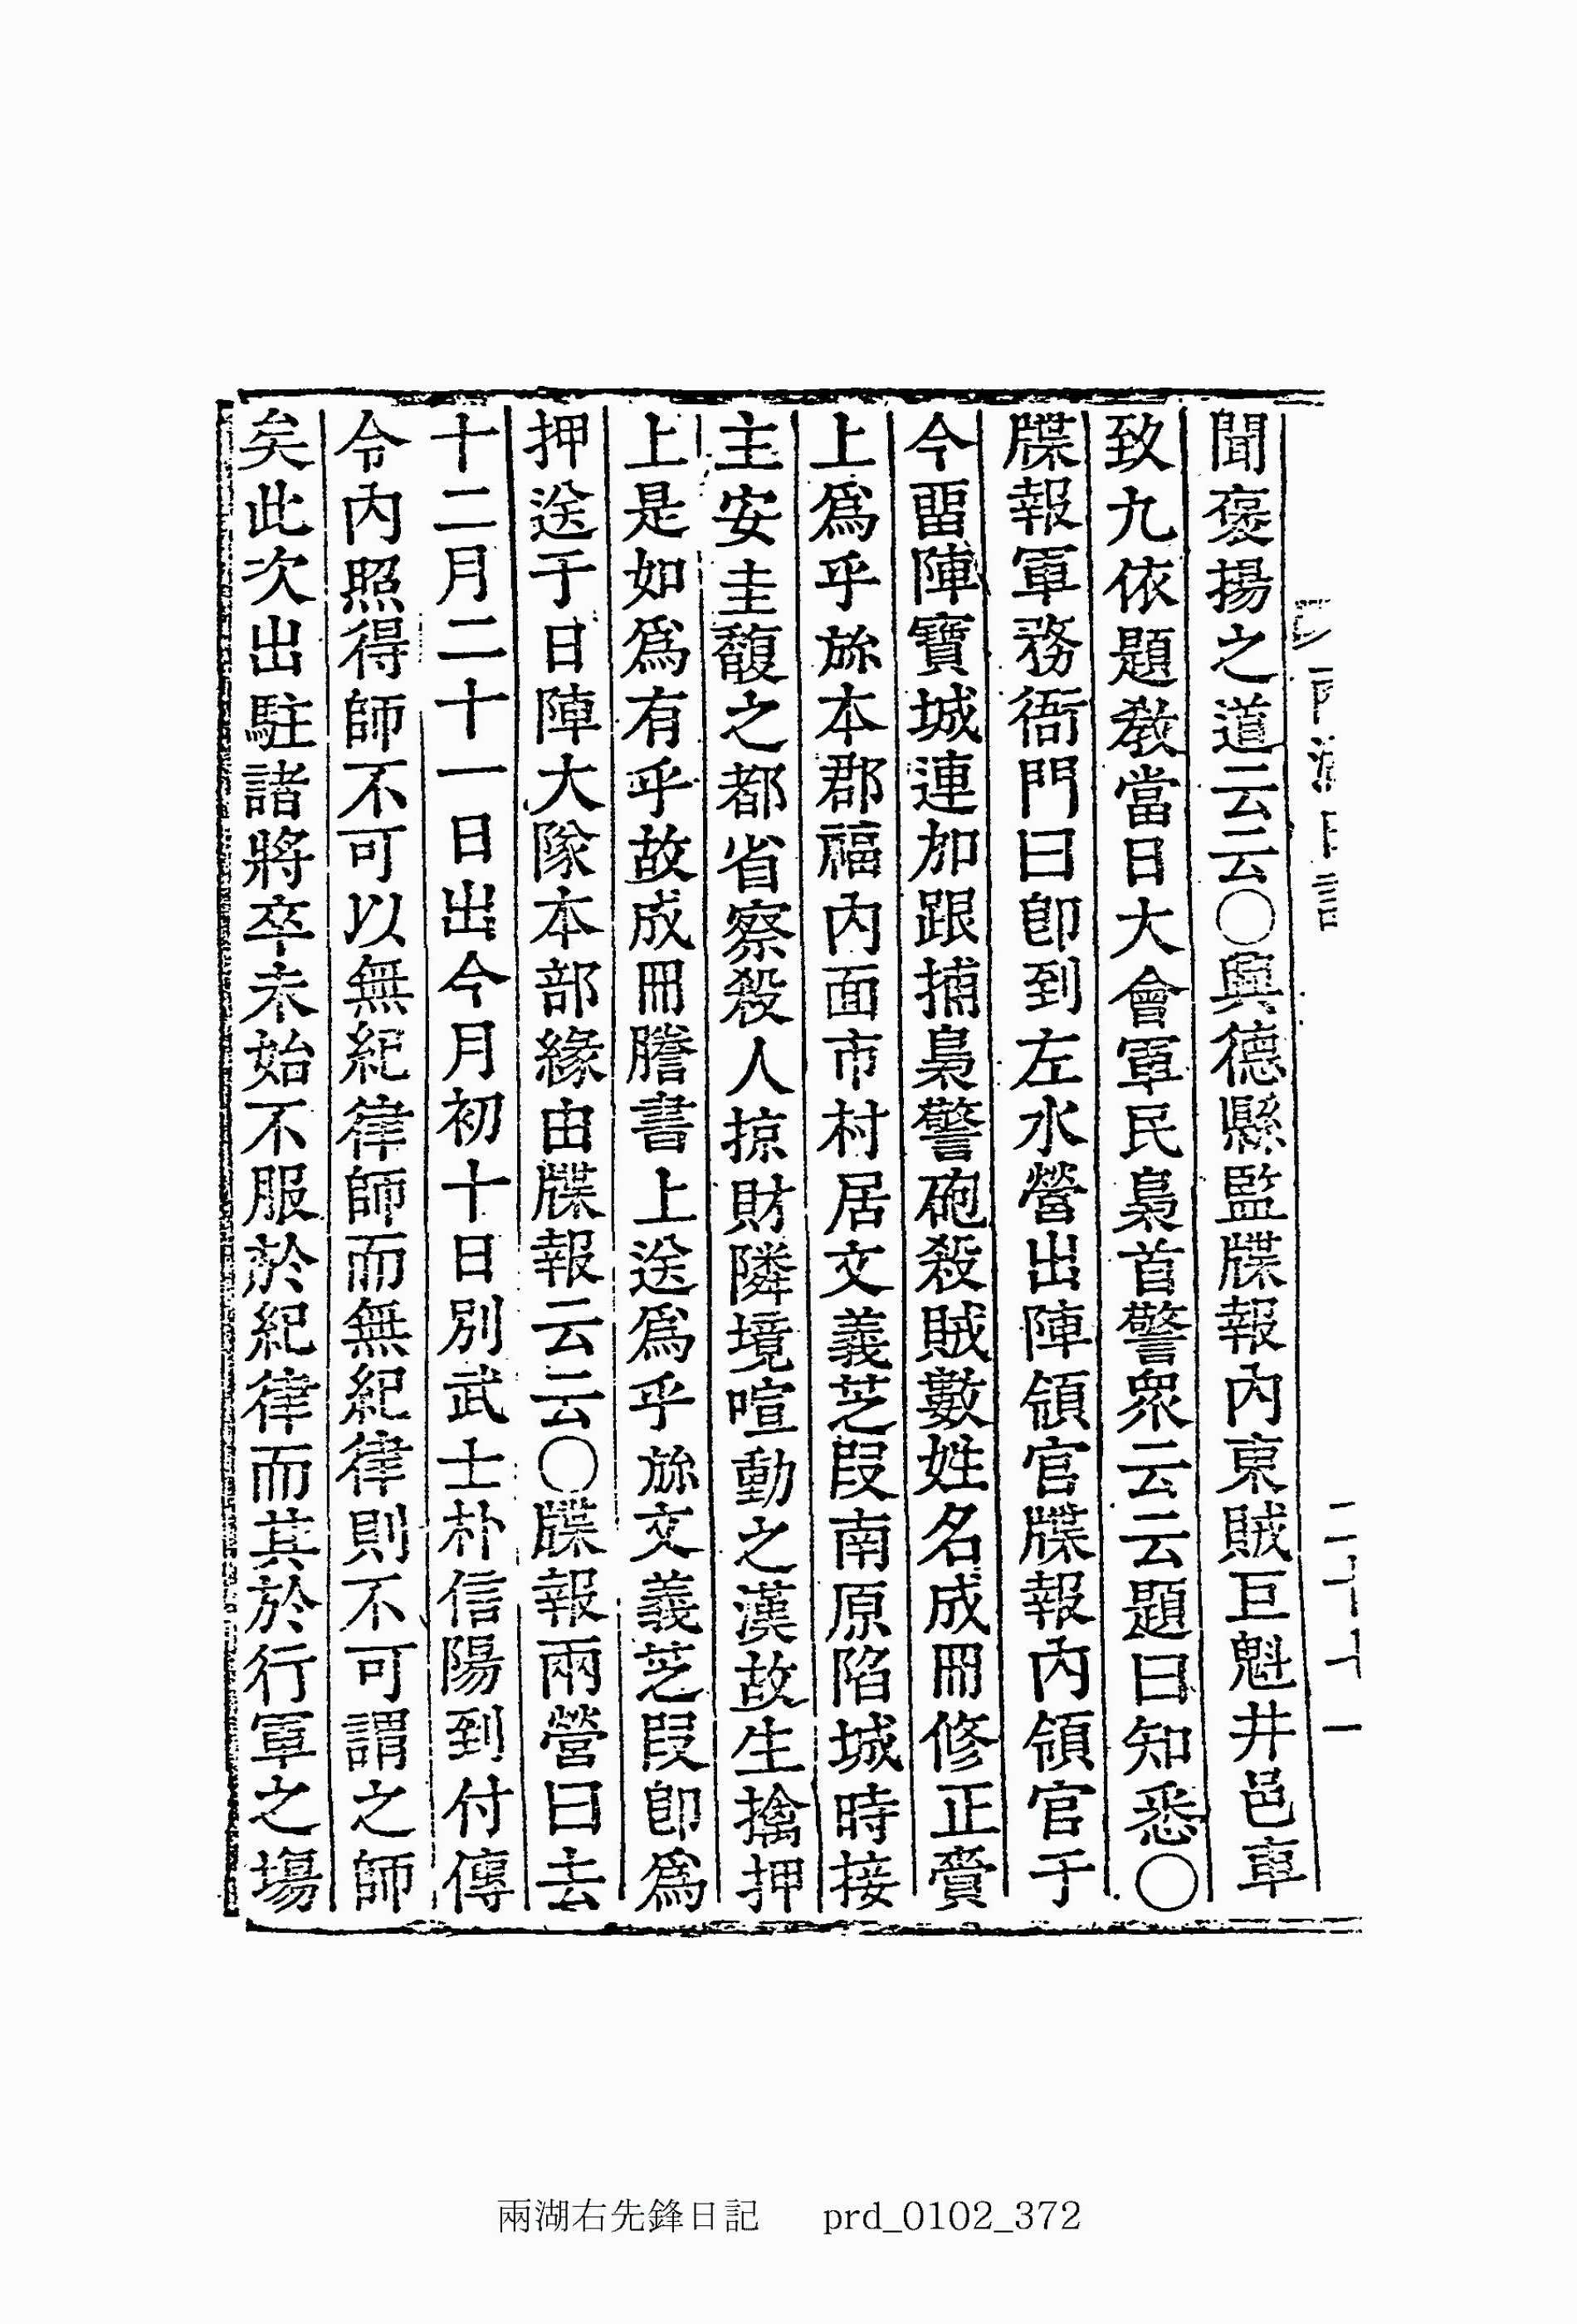 聞褒揚之道云云○興德縣監牒報內東賊巨魁井邑車
致九依題敎當日大會軍民梟首警衆云云題曰知悉○
牒報軍務衙門曰卽到左水營出陣領官牒報內領官于
今留陣寶城連加跟捕梟警砲殺賊數姓名成冊修正賫
上爲乎旀本郡福內面市村居文義芝段南原陷城時接
主安圭馥之都省察殺人掠財隣境喧動之漢故生擒押
上是如爲有乎故成冊謄書上送爲乎旀文義芝段卽爲
押送于日陣大隊本部緣由牒報云云○牒報兩營曰去
十二月二十一日出今月初十日別武士朴信陽到付傳
令內照得師不可以無紀律師而無紀律則不可謂之師
矣此次出駐諸將卒未始不服於紀律而其於行軍之場
二十七一
兩湖右先鋒日記 prd_0102_372